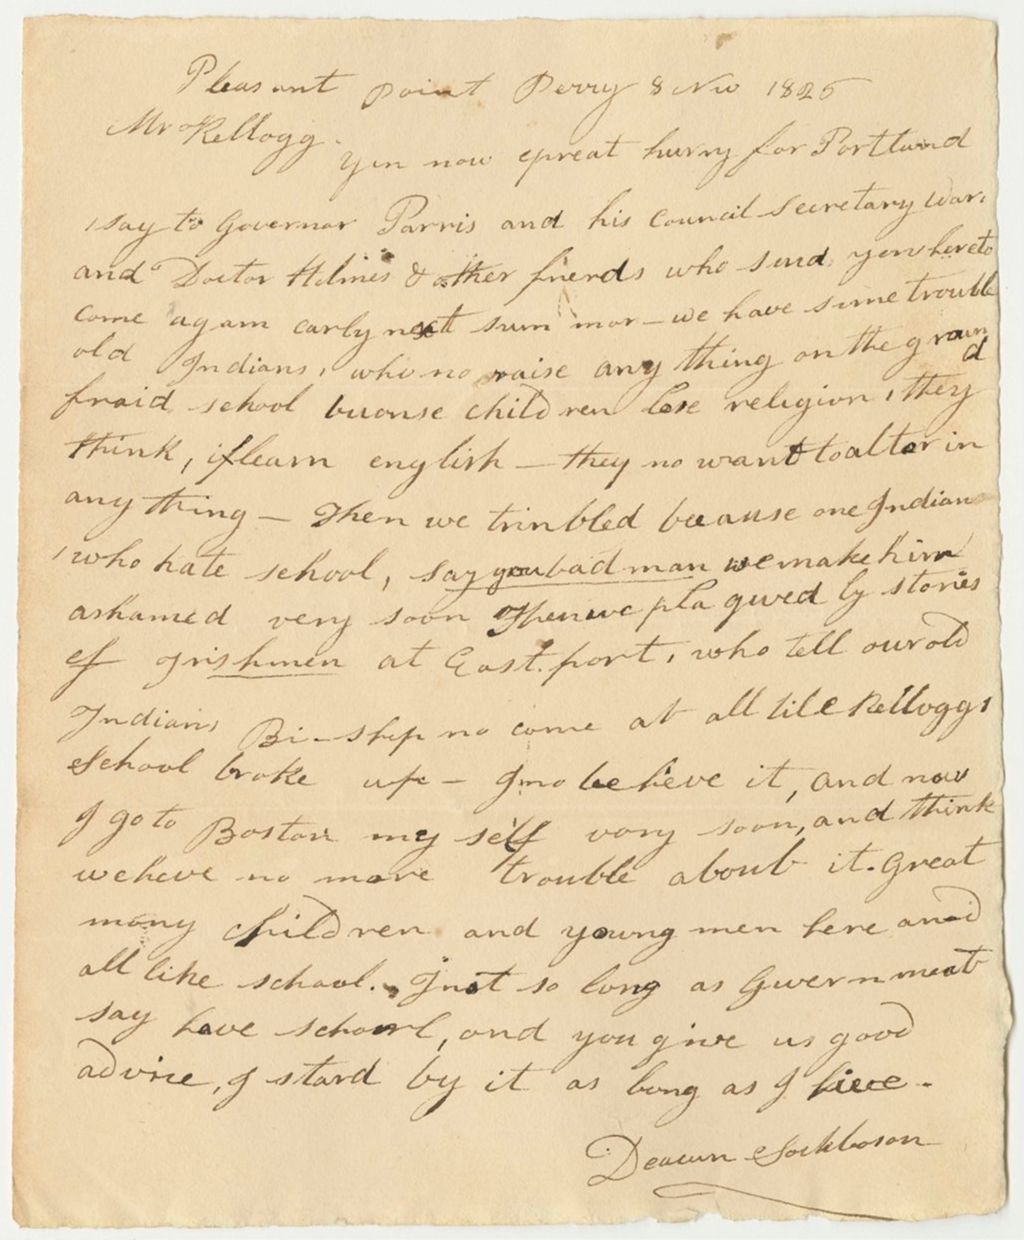 Pleasant point Perry 8 Nov 1826
Mr Kellogg.
You now great hurry for Portland
, say to Governor Parris and his Council Secretary War.
and Doctor Holmes & other frierds who send you here to
come again early next sum mor - we have some trouble
old Indians, who no raise any thing on the ground
fraid school becouse children lose religion, they
think, if learn english - they no want to alter in
any thing - Then we trinbled because one Indian
, who hate school, say you bad man we make him
ashamed very soon Then we pla gued by stories
of Irishmen at East.port, who tell our old
Indians Bi-shp no come at all till Kelloggs
School broke up - I no believe it, and now
I go to Boston my self vory soon, and think
we heve no more trouble about it. Great
many children and young men here and
all like school. Just so long as Government
say have school, and you give us good
advice, I stand by it as long as I live.
Deacun Sockboson